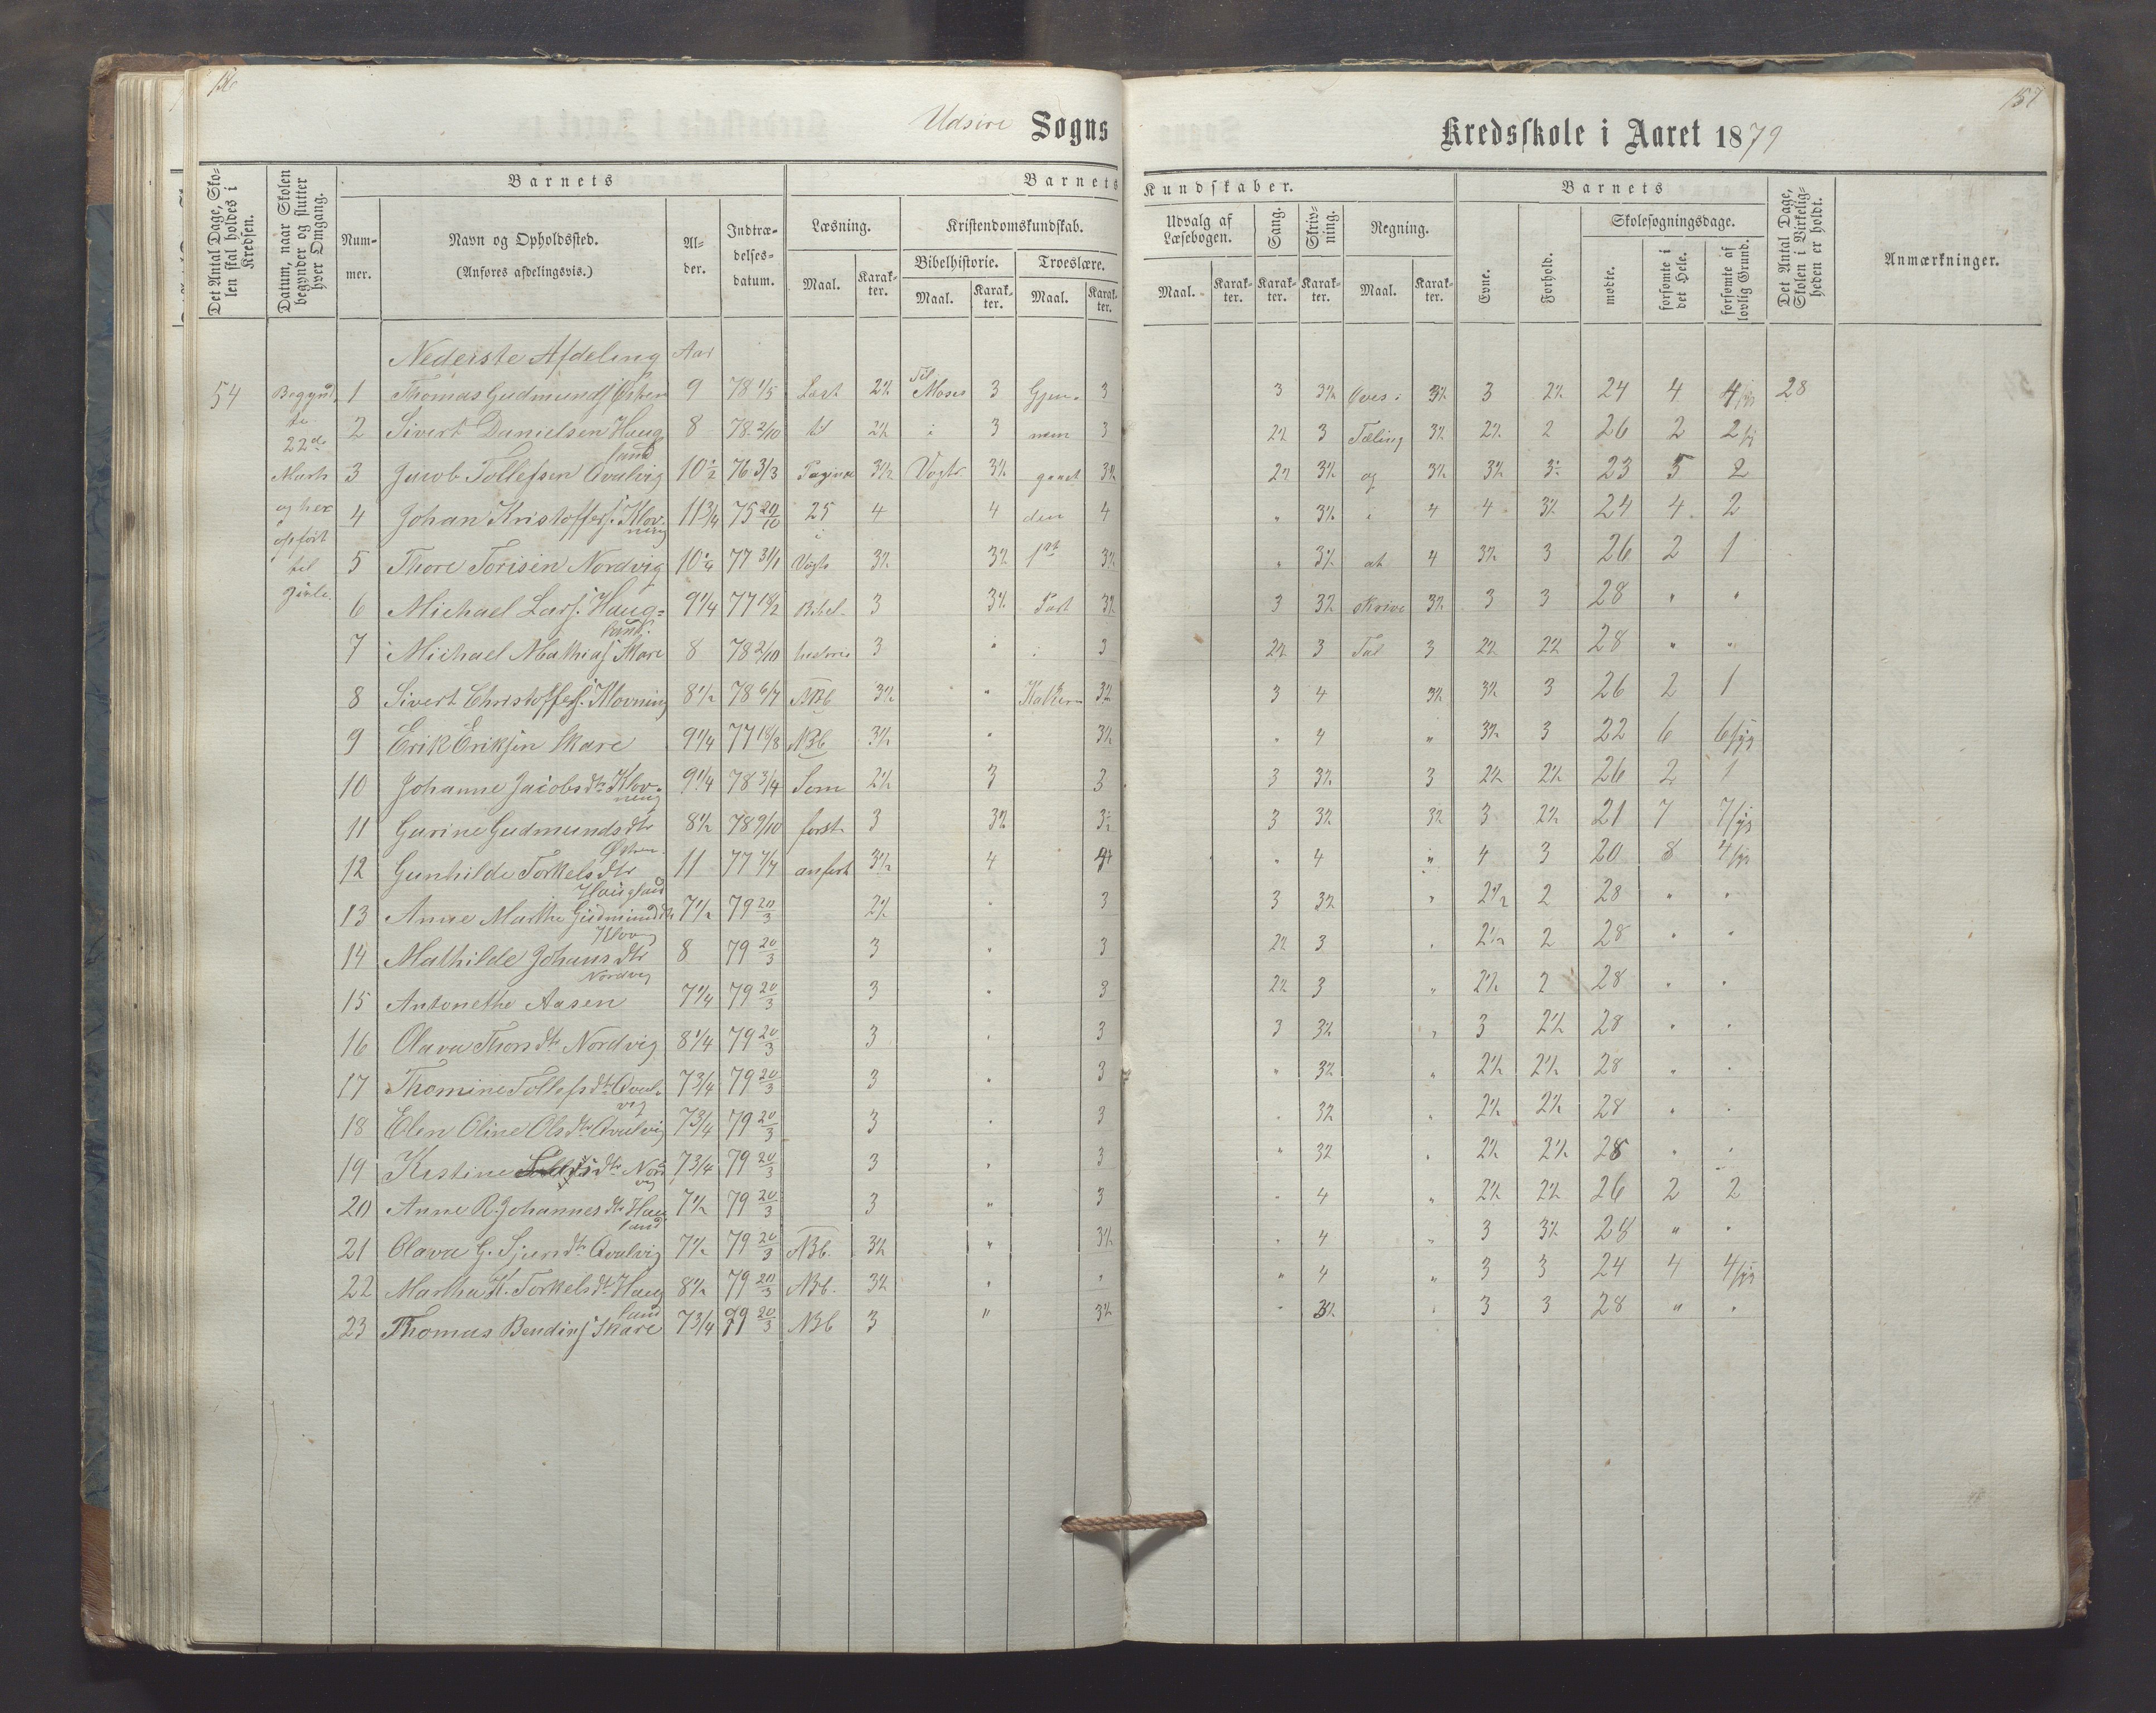 156
157
Udsire Sogns
Kredsskole i Aaret 1879
Det Antal Dage, Skolen skal holdes i Kredsen.
Datum, naar Skolen begynder og slutter hver Omgang.
Barnets
Barnets
Kundskaber.
Barnets
Det Antal Dage, Skolen i Virkeligheden er holdt.
Anmærkninger.
Nummer.
Navn og Opholdssted.
(Anføres afdelingsvis.)
Alder.
Indtrædelsesdatum.
Læsning.
Kristendomskundskab.
Bibelhistorie.
Troeslære.
Udvalg af Læsebogen.
Sang.
Skrivning.
Regning.
Evne.
Forhold.
Skolesøgningsdage.
mødte.
forsømte i det Hele.
forsømte af lovlig Grund.
Maal. Karakter. Maal. Karakter. Maal. Karakter.
Maal. Karakter. Karakter. Karakter. Maal. Karakter.
Nederste Afdeling Aar
54 Begynd 1 Thomas Gudmunds Østren 9 78 1/5 Læst 2½ Til Moses 3 Gjen- 3 3 3½ Øves i 3½ 3 2½ 24 4 4 28
te 22de 2 Sivert Danielsen Haugland 8 78 2/10 til 2½ i 3 nem 3 2½ 3 Tæling 3½ 2½ 2 26 2 2
Marth 3 Jacob Tollefsen Qvalvig 10½ 76 3/3 Pagina 3½ Vogts 3½ gaaet 3½ 2½ 3½ og 3½ 3½ 3½ 23 5 2
og her 4 Johan Kristoffers. Klovning 11¾ 75 29/10 25 4 4 den 4 " 3½ i 4 4 3½ 24 4 2
opført 5 Thore Torisen Nordvig 10¼ 77 31/1 i Vogts 3½ 3½ 1ste 3½ " 3½ at 4 3½ 3 26 2 1
til 6 Michael Lars. Haugland 9¼ 77 Bibel- 3 3½ Part 3½ 3 3½ skrive 3½ 3 3 28 " "
7 Michael Mathias Skare 8 78 2/10 3 " i 3 2½ 3 Tal 3 2½ 2½ 28 " "
8 Sivert Christoffers. Klovning 8½ 78 6/7 NB 3½ " 3½ 3 4 3½ 3½ 3 26 2 1
9 Erik Eriksen Skare 9¼ 77 18/8 NB 3½ " 3½ " 4 " 3½ 3 22 6 6
10 Johanne Jacobsdtr Klovning 9¼ 78 3/4 Som 2½ 3 3 3 3½ 3 2½ 2½ 26 2 1
11 Gurine Gudmundsdtr Østren 8½ 78 9/10 først 3 3½ 3½ 3 3½ 3½ 3 2½ 21 7 7
12 Gunhilde Torkelsdtr Haugland 11 77 4/7 anført 3½ 4 4 " 4 " 4 3 20 8 4
13 Anne Marthe Gudmunddtr Klovng 7½ 79 20/3 2½ " 3 3 3½ " 2½ 2 28 " "
14 Mathilde Johansdtr Nordvig 8 79 20/3 3 " 3 2½ 3 " 2½ 2 28 " "
15 Antonethe Aasen 7¼ 79 20/3 3 " 3 2½ 3 " 2½ 2 28 " "
16 Olava Thorsdtr Nordvig 8¼ 79 20/3 3 " 3 3 3½ " 3 2½ 28 " "
17 Thomine Tollefsdtr Qvalvig 7¾ 79 20/3 3 " 3 " 3½ " 2½ 2½ 28 " "
18 Elen Oline Olsdtr Qvalvig 7¾ 79 20/3 3 " 3 " 3½ " 2½ 2½ 28 " "
19 Kistine dtr Norvig 7¾ 79 20/3 3 " 3 " 3½ " 2½ 2½ 28 " "
20 Anne R. Johannesdtr Haugland 7½ 79 20/3 3 " 3 " 4 " 2½ 2½ 26 2 2
21 Olava G. Sjursdtr Qvalvig 7½ 79 20/3 NB. 3½ " 3½ " 4 " 3 3½ 28 " "
22 Martha K. Torkelsdtr Haugland 8½ 79 20/3 NB. 3½ " " " 4 " 3 3 24 4 4
23 Thomas Bendins Skare 7¾ 79 20/3 NB 3 " 3½ " 3½ " 3 3 28 " "